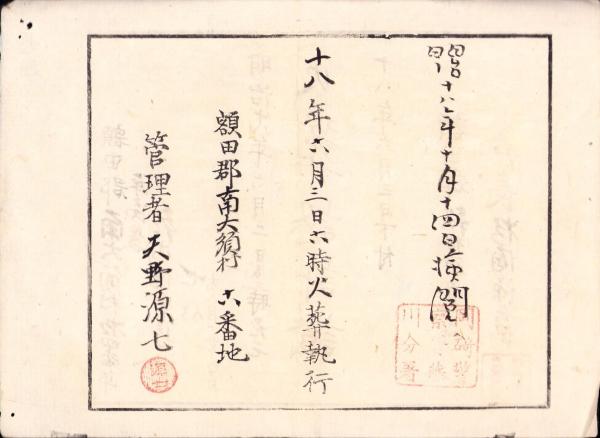 明治十八年十月十四日検閲
十八年六月三日六時火葬執行
額田郡南大須村 六番地
管理者 天野源七
源七